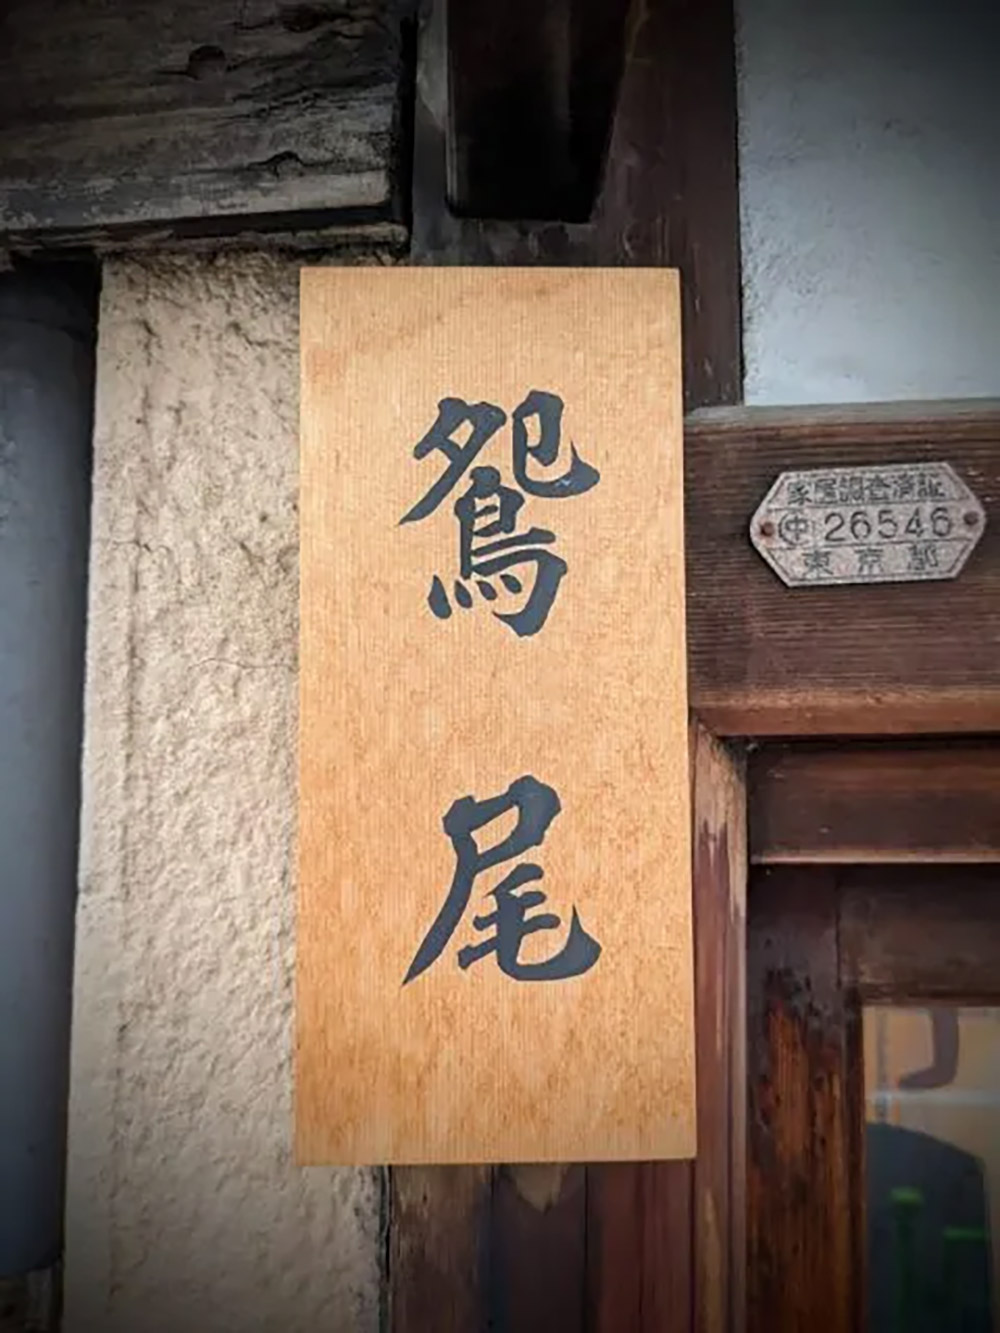 鴛
尾
家屋調査済証
㊥ 26546
東京都